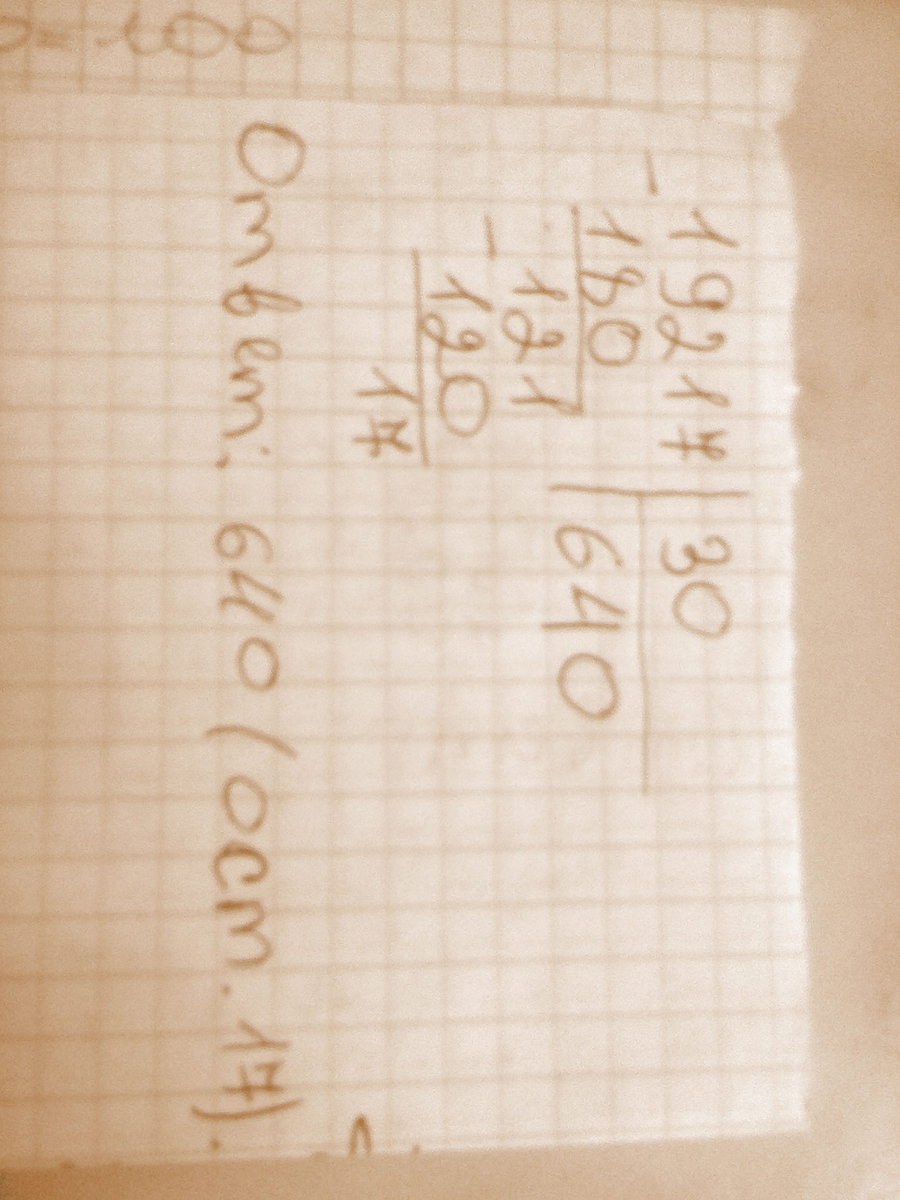 - 19217 | 30
180 | 640
- 121
120
17
Ответ: 640 (ост. 17).